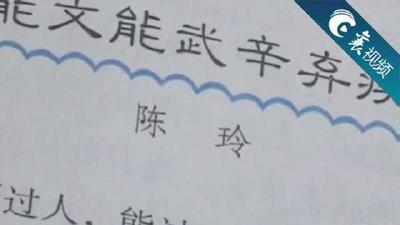 襄视频
能文能武辛弃疾
陈玲
过人，能